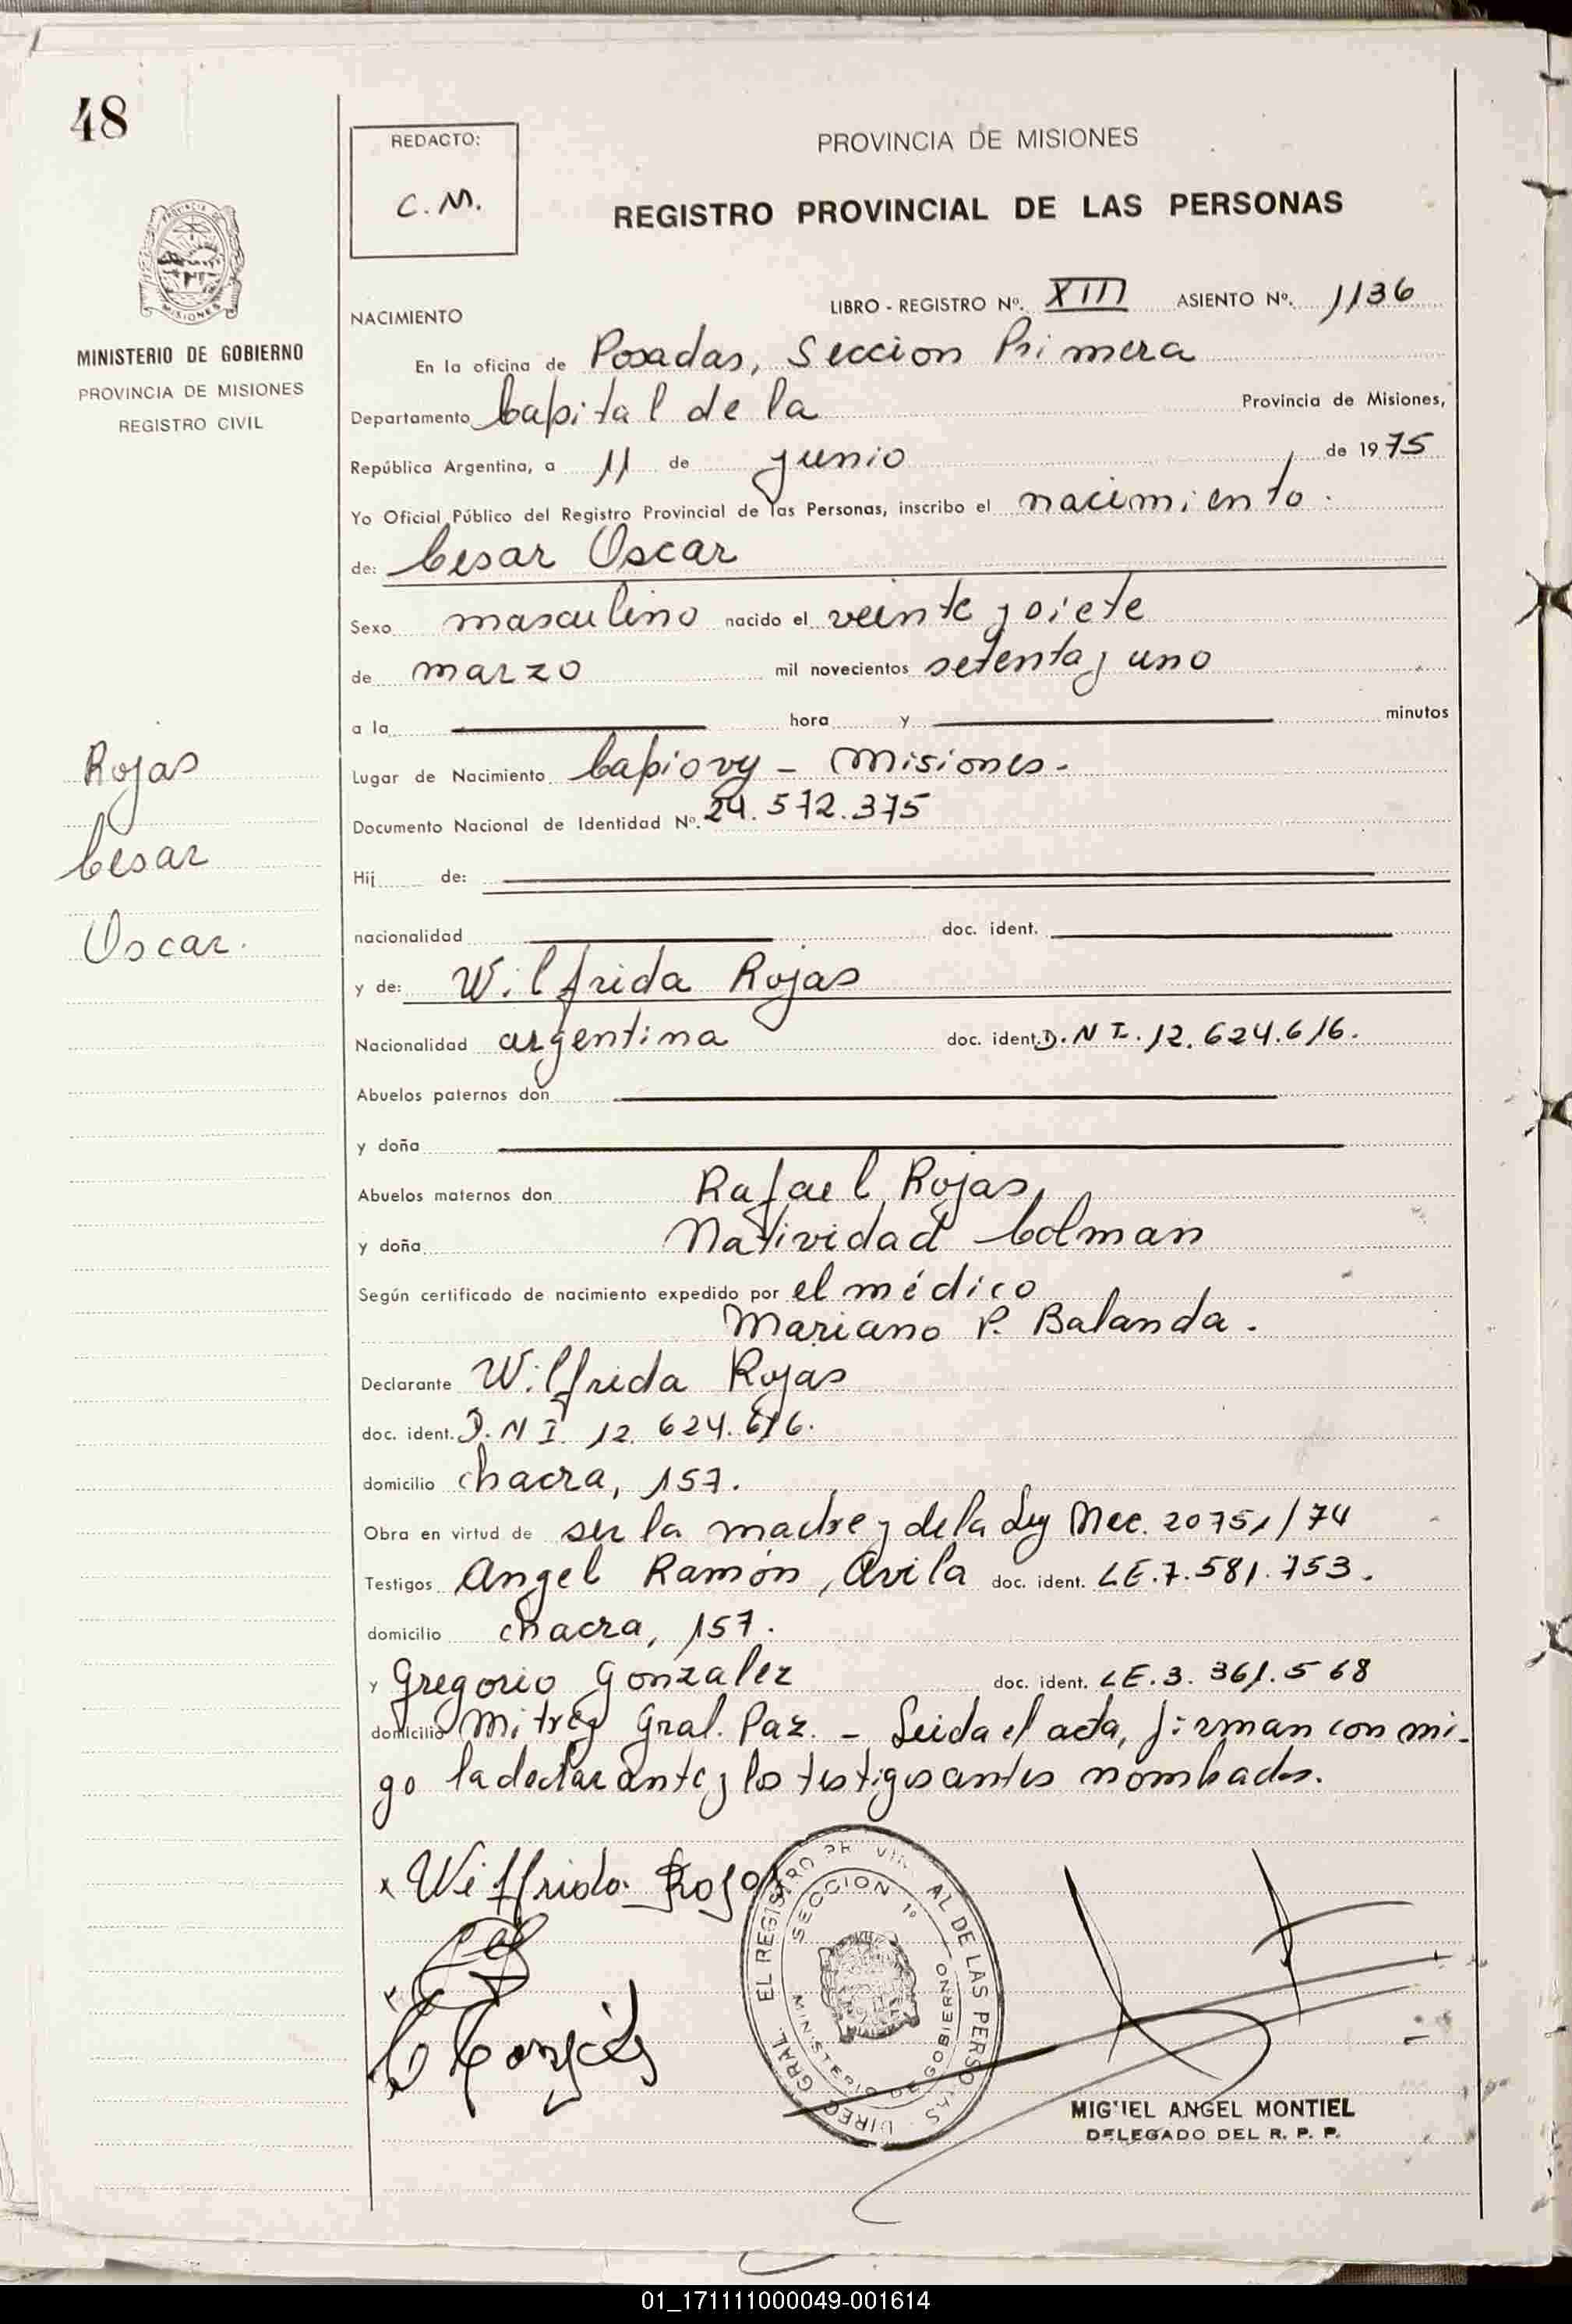 48
REDACTO:
C.M.
PROVINCIA DE MISIONES
REGISTRO PROVINCIAL DE LAS PERSONAS
MISIONES
MINISTERIO DE GOBIERNO
PROVINCIA DE MISIONES
REGISTRO CIVIL
NACIMIENTO
LIBRO - REGISTRO Nº. XIII ASIENTO Nº. 1136
En la oficina de Posadas, Seccion Primera
Departamento Capital de la Provincia de Misiones,
República Argentina, a 11 de junio de 1975
Yo Oficial Público del Registro Provincial de las Personas, inscribo el nacimiento.
de: Cesar Oscar
Sexo masculino nacido el veinte y siete
de marzo mil novecientos setenta y uno
a la hora y minutos
Rojas
Cesar
Oscar.
Lugar de Nacimiento Capiovy - Misiones.-
Documento Nacional de Identidad Nº. 24.572.375
Hij de:
nacionalidad doc. ident.
y de: Wilfrida Rojas
Nacionalidad argentina doc. ident. D.N I. 12.624.616.
Abuelos paternos don
y doña
Abuelos maternos don Rafael Rojas
y doña Natividad Colman
Según certificado de nacimiento expedido por el médico
Mariano P. Balanda.
Declarante Wilfrida Rojas
doc. ident. D.N I. 12.624.616.
domicilio chacra, 157.
Obra en virtud de ser la madre y de la Ley Nac. 20751/74
Testigos Angel Ramón, Avila doc. ident. LE.7.581.753.
domicilio chacra, 157.
y Gregorio Gonzalez doc. ident. LE.3.361.568
domicilio Mitre y Gral. Paz. - Leida el acta, firman con mi-
go la declarante y los testigos antes nombados.
x Wilfrida Rojas
SECCION 1º
MINISTERIO DE GOBIERNO
MIGUEL ANGEL MONTIEL
DELEGADO DEL R. P. P.
01_171111000049-001614